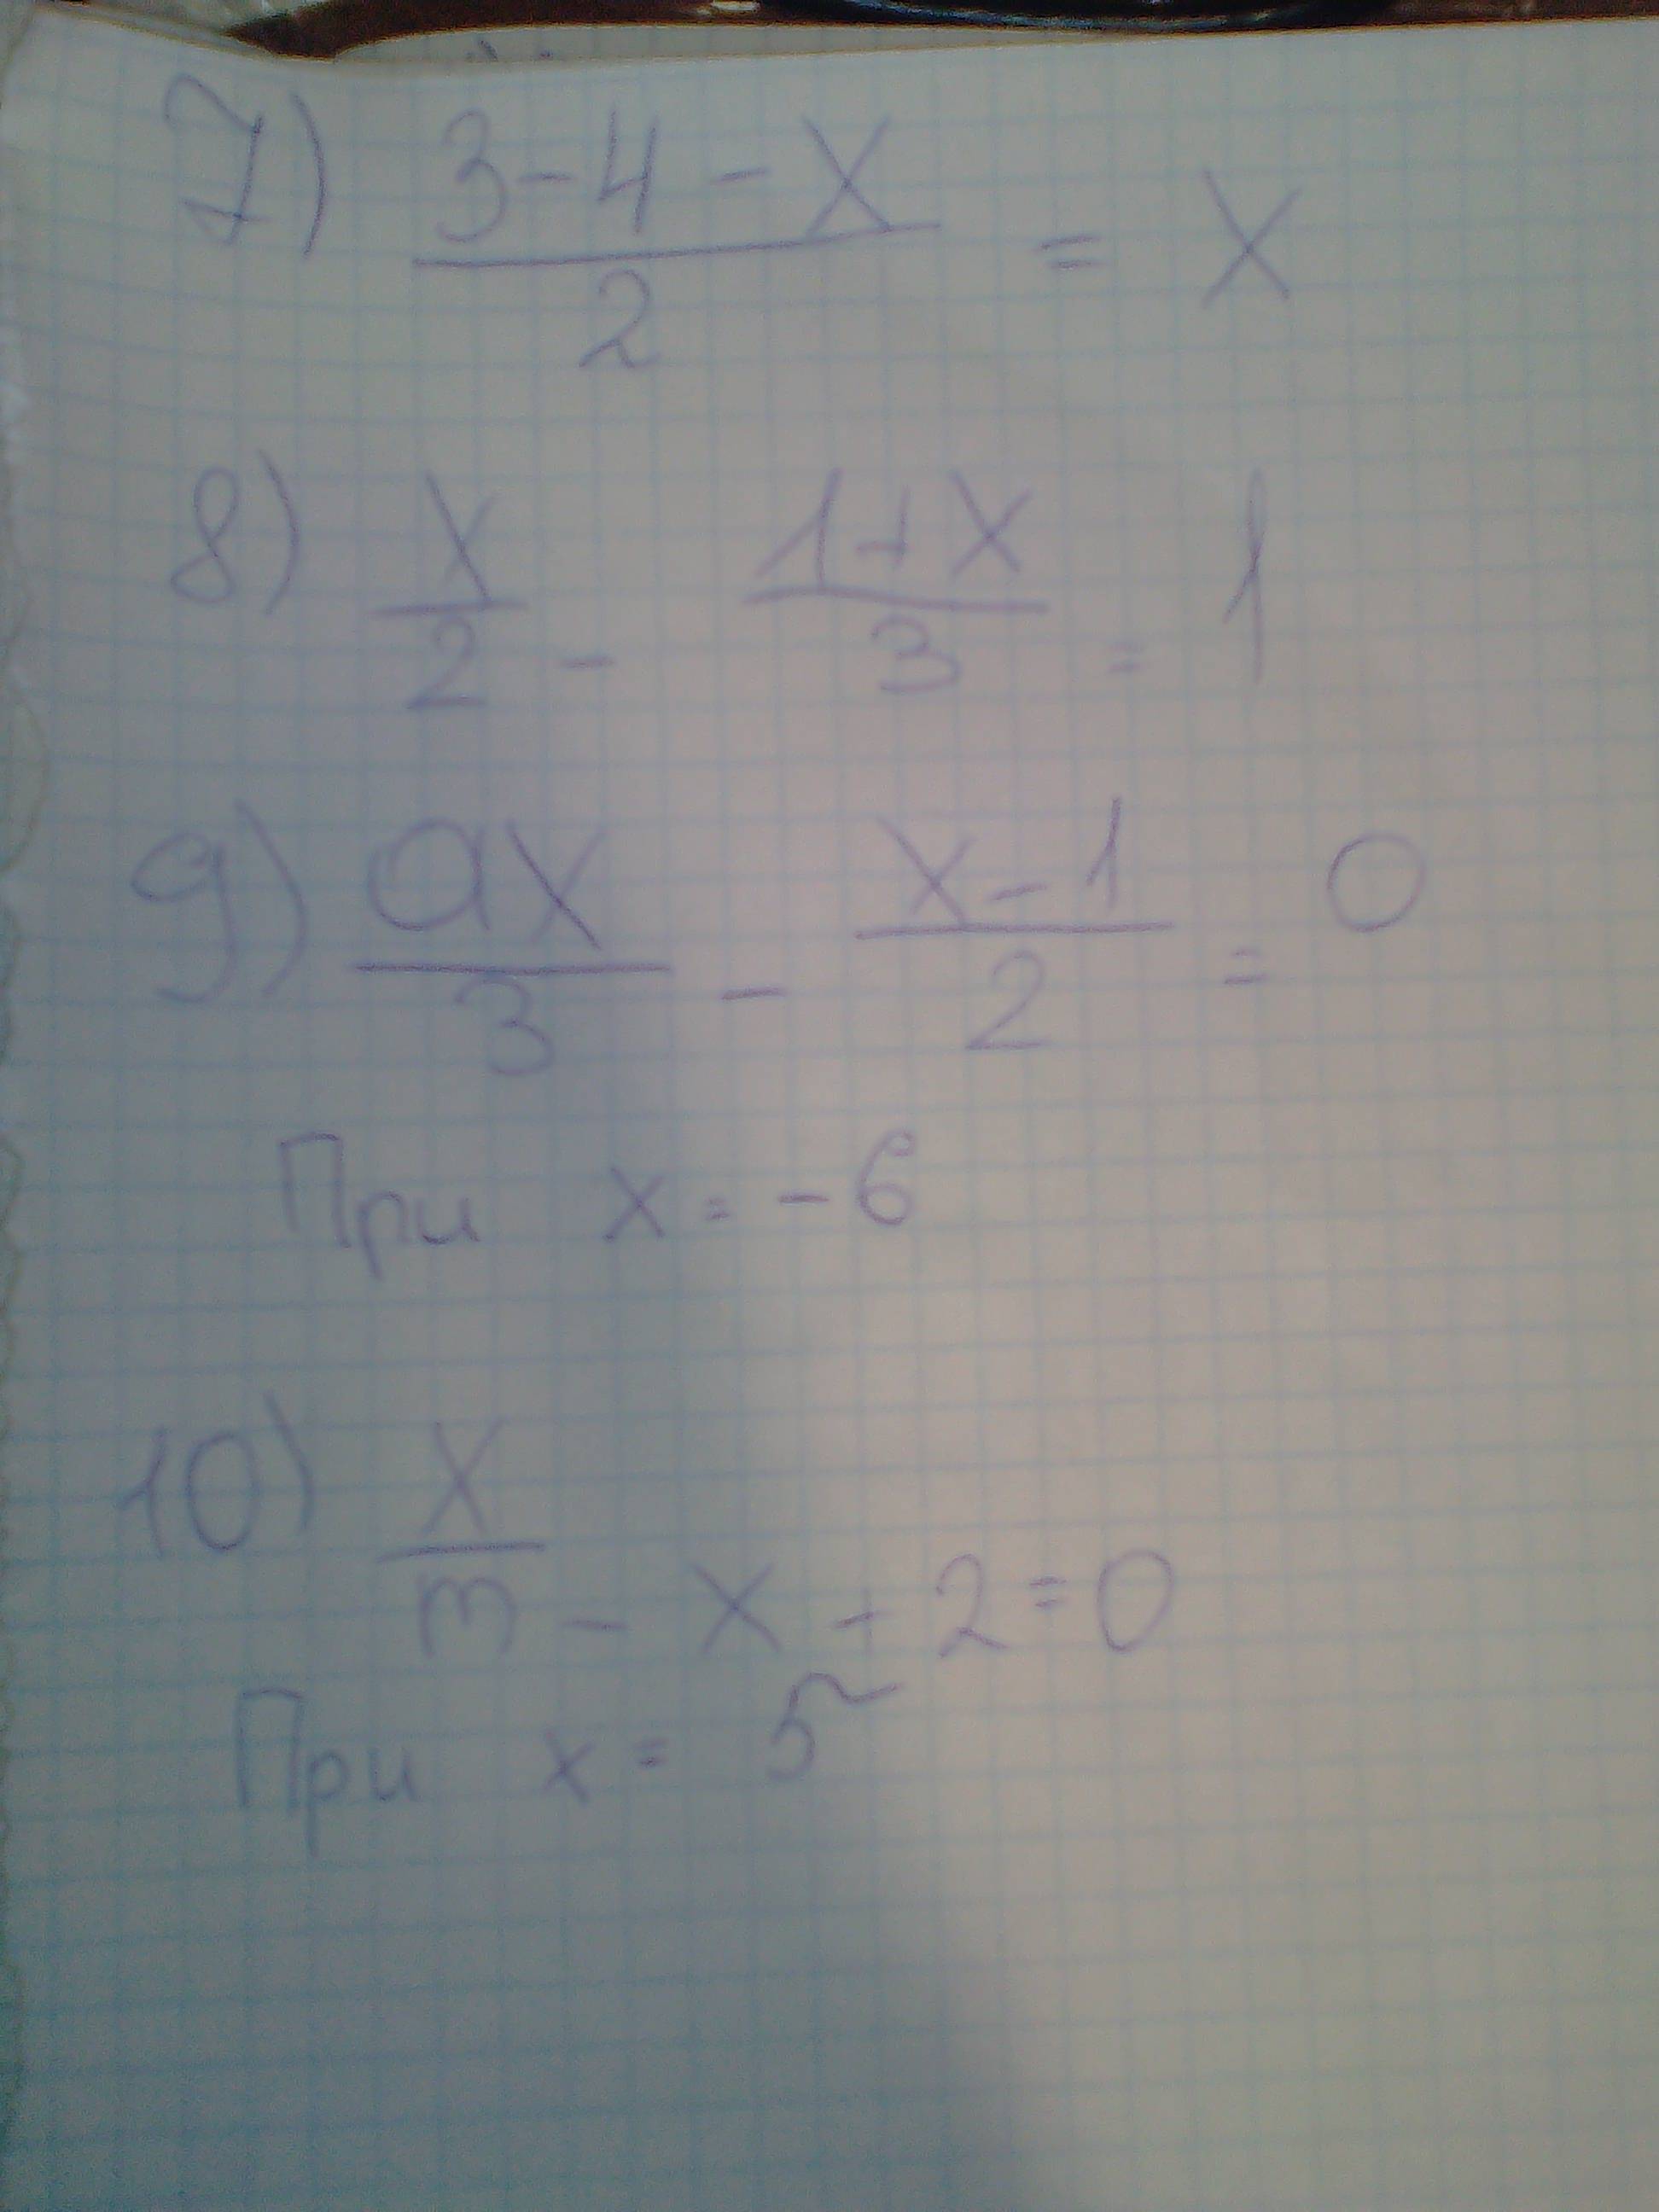 7) (3-4-x)/2 = x
8) x/2 - (1+x)/3 = 1
9) ax/3 - (x-1)/2 = 0
При x = -6
10) x/m - x + 2 = 0
При x = 5